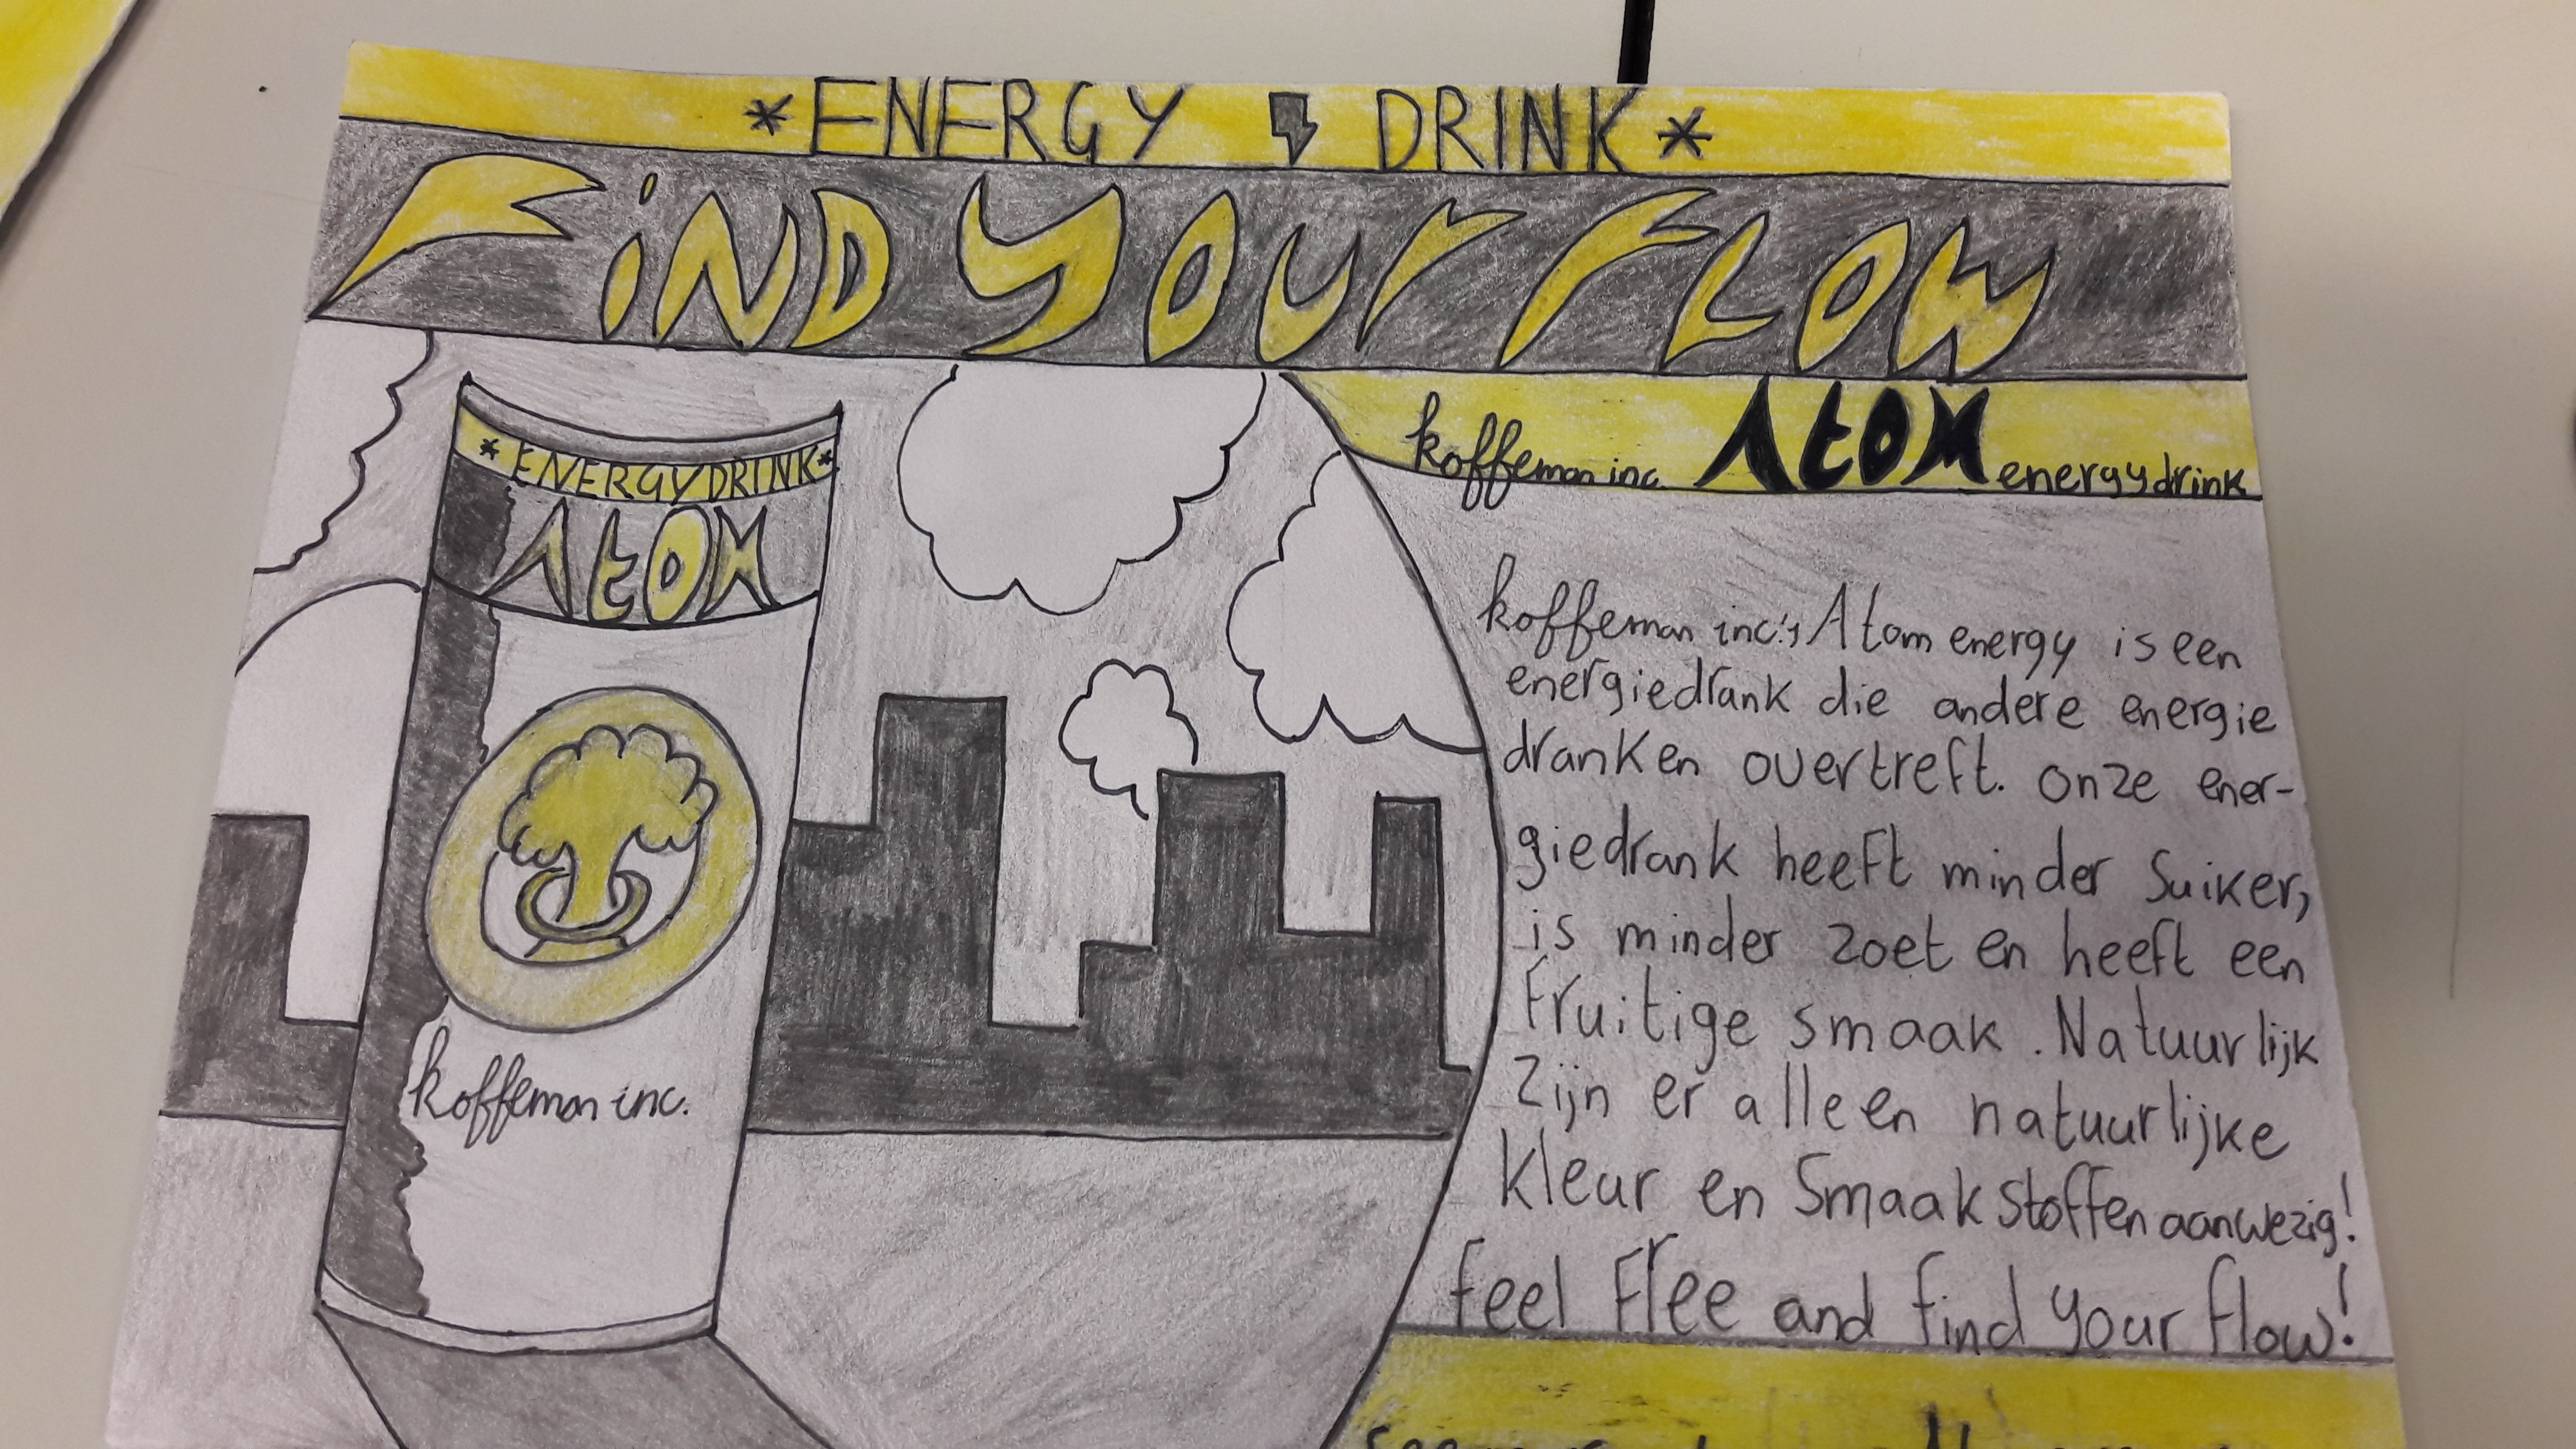 *ENERGY DRINK*
FiND YOUr FLOW
koffeman inc. AtOM energydrink
*ENERGYDRINK*
AtOM
koffeman inc.
koffeman inc.'s Atom energy is een
energiedrank die andere energie
dranken overtreft. onze ener-
giedrank heeft minder Suiker,
is minder zoet en heeft een
fruitige smaak. Natuurlijk
Zijn er alleen natuurlijke
Kleur en Smaakstoffen aanwezig!
feel Free and find your flow!